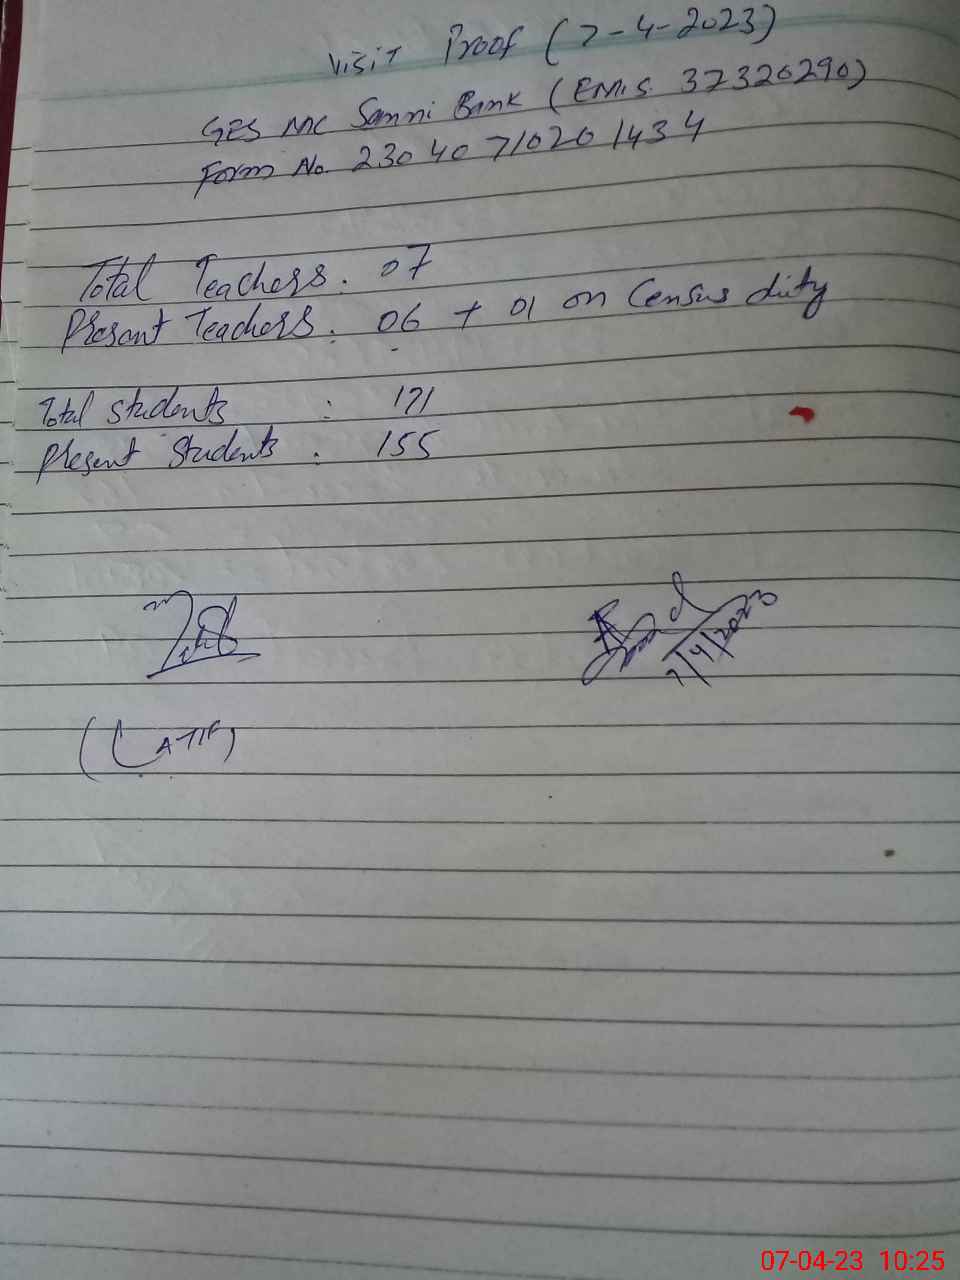 Visit Proof (7-4-2023)
GES MC Sanni Bank (EMIS 37320290)
Form No. 23040710201434
Total Teachers. 07
Present Teachers. 06 + 01 on Census duty
Total Students : 171
Present Students : 155
7/4/2023
(LATIF)
07-04-23 10:25